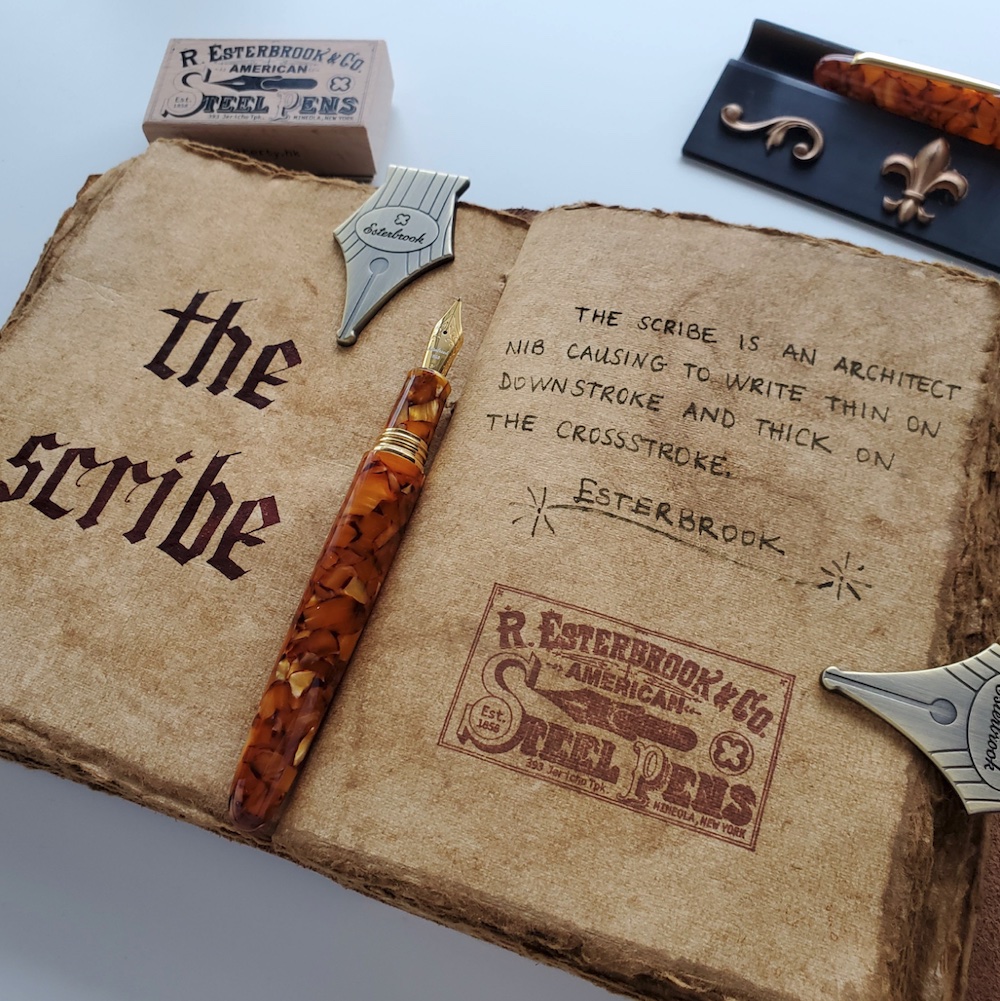 R. ESTERBROOK & CO.
AMERICAN
STEEL PENS
Est. 1858
393 Jericho Tpk. MINEOLA, NEW YORK
Esterbrook
the
scribe
THE SCRIBE IS AN ARCHITECT
NIB CAUSING TO WRITE THIN ON
DOWNSTROKE AND THICK ON
THE CROSSSTROKE.
ESTERBROOK
R. ESTERBROOK & CO.
AMERICAN
STEEL PENS
Est. 1858
393 Jericho Tpk. MINEOLA, NEW YORK
Esterbrook